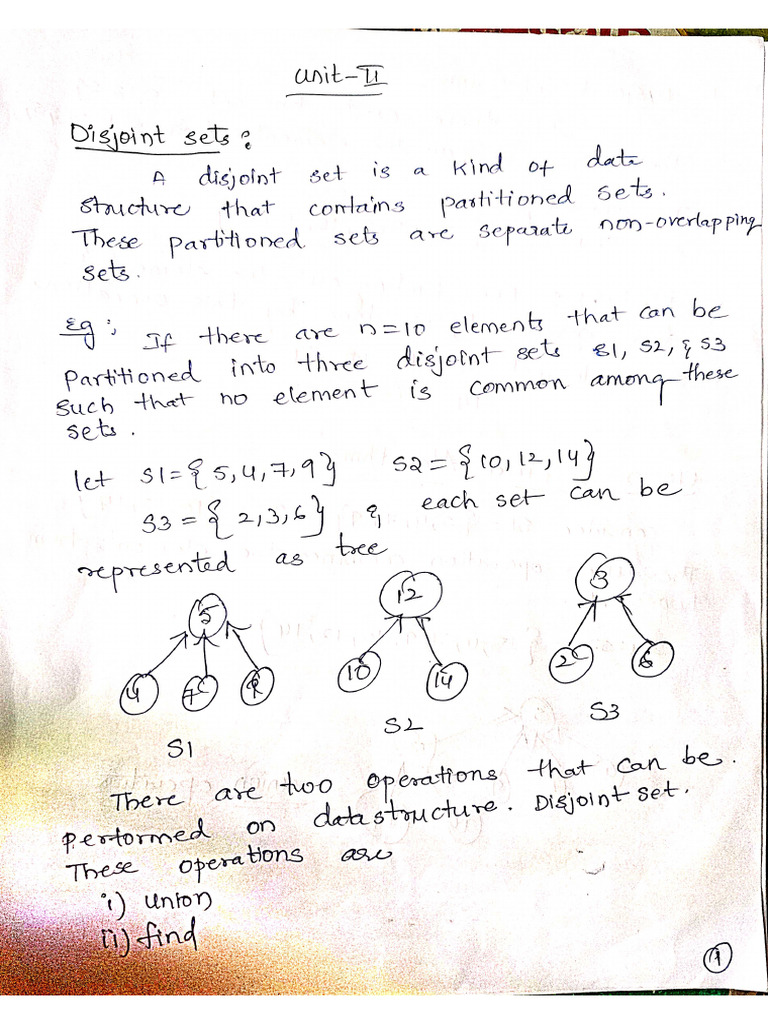 Unit-II
Disjoint sets:
A disjoint set is a kind of data
structure that contains partitioned sets.
These partitioned sets are separate non-overlapping
sets.
Eg: If there are n=10 elements that can be
partitioned into three disjoint sets S1, S2, & S3
such that no element is common among these
sets.
let S1={5,4,7,9} S2={10,12,14}
S3={2,3,6} & each set can be
represented as tree
5 12 3
4 7 9 10 14 2 6
S1 S2 S3
There are two operations that can be.
performed on datastructure. Disjoint set.
These operations are
i) union
ii) find
1